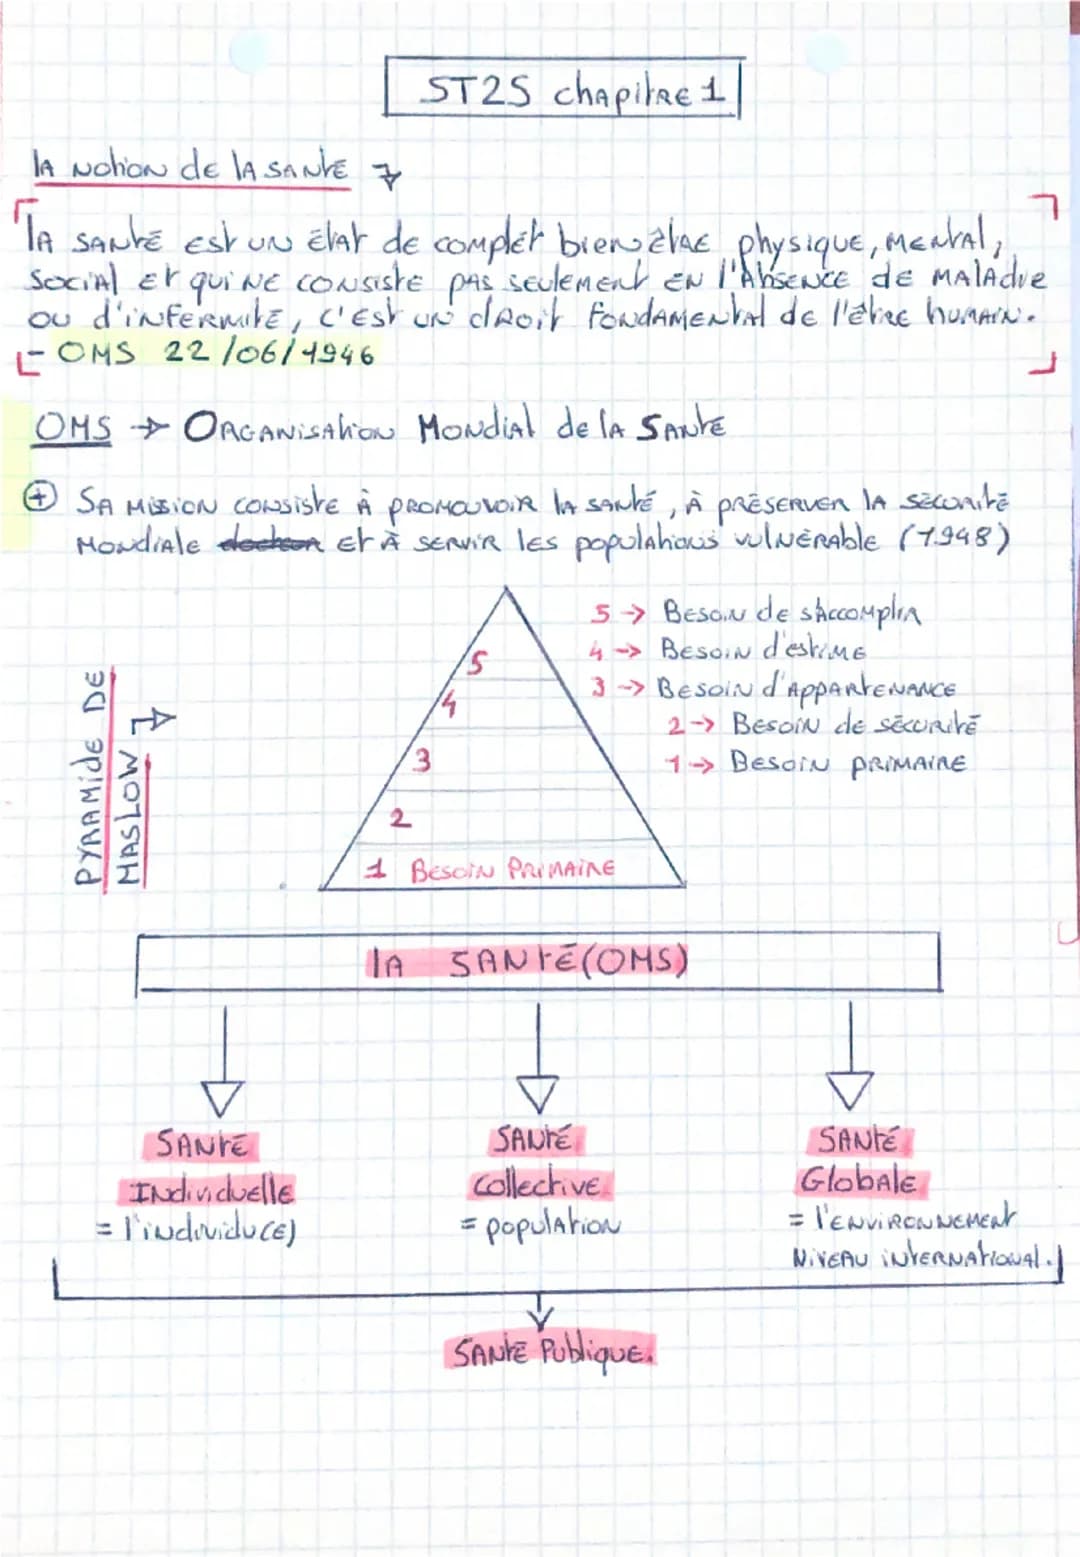 ST2S chapitre 1
la notion de la santé
la santé est un état de complet bien être physique, mental,
social et qui ne consiste pas seulement en l'absence de maladie
ou d'infermité, c'est un droit fondamental de l'être humain.
- OMS 22/06/1946
OMS → Organisation Mondial de la Santé
+ Sa mission consiste à promouvoir la santé, à préserver la sécurité
Mondiale et à servir les populations vulnérable (1948)
PYRAMIDE DE
MASLOW
5 → Besoin de s'accomplir
4 → Besoin d'estime
3 → Besoin d'appartenance
2 → Besoin de sécurité
1 → Besoin primaire
5
4
3
2
1 Besoin Primaire
la SANTÉ (OMS)
Santé
Individuelle
= l'individu(e)
Santé
collective
= population
Santé
Globale
= l'environnement
niveau international.
Santé Publique.